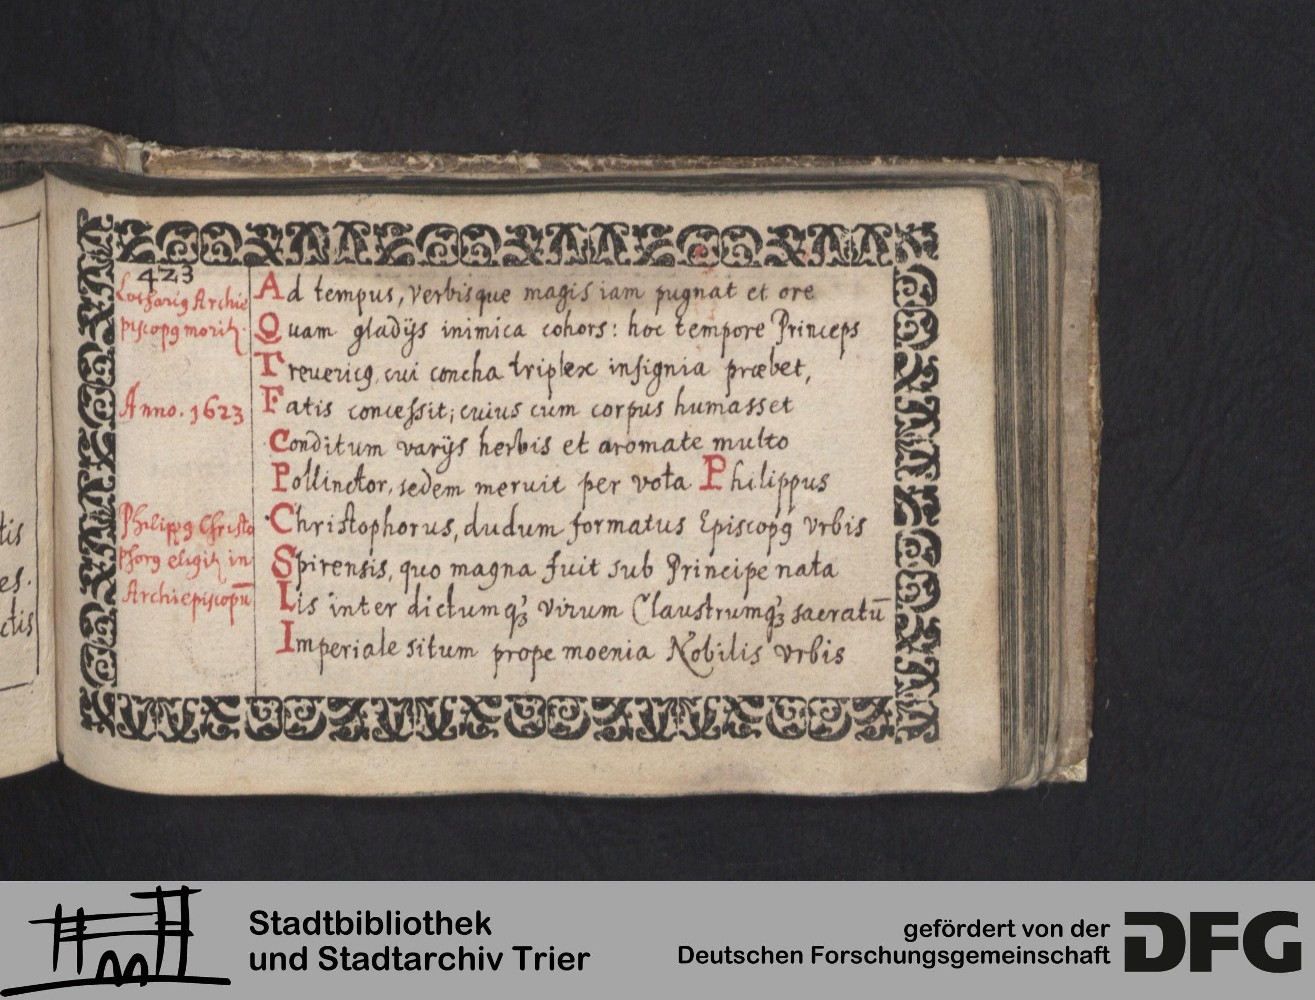 tis
es.
ctis
423
Lothariꝰ Archie
piscopꝰ moritꝛ.
Anno. 1623
Philippꝰ Christo
phorꝰ eligitꝛ in
Archiepiscopū
Ad tempus, verbisque magis iam pugnat et ore
Quam gladijs inimica cohors: hoc tempore Princeps
Trevericꝰ, cui concha triplex insignia præbet,
Fatis concessit; cuius cum corpus humasset
Conditum varijs herbis et aromate multo
Pollinctor, sedem meruit per vota Philippus
Christophorus, dudum formatus Episcopꝰ vrbis
Spirensis, quo magna fuit sub Principe nata
Lis inter dictumqꝫ virum Claustrumqꝫ sacratū
Imperiale situm prope moenia Nobilis vrbis
Stadtbibliothek
und Stadtarchiv Trier
gefördert von der
Deutschen Forschungsgemeinschaft
DFG